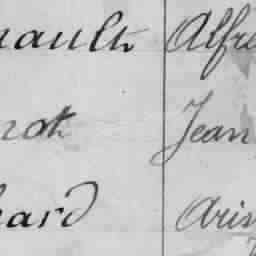 nault Alfre
rot Jean
hard Aris